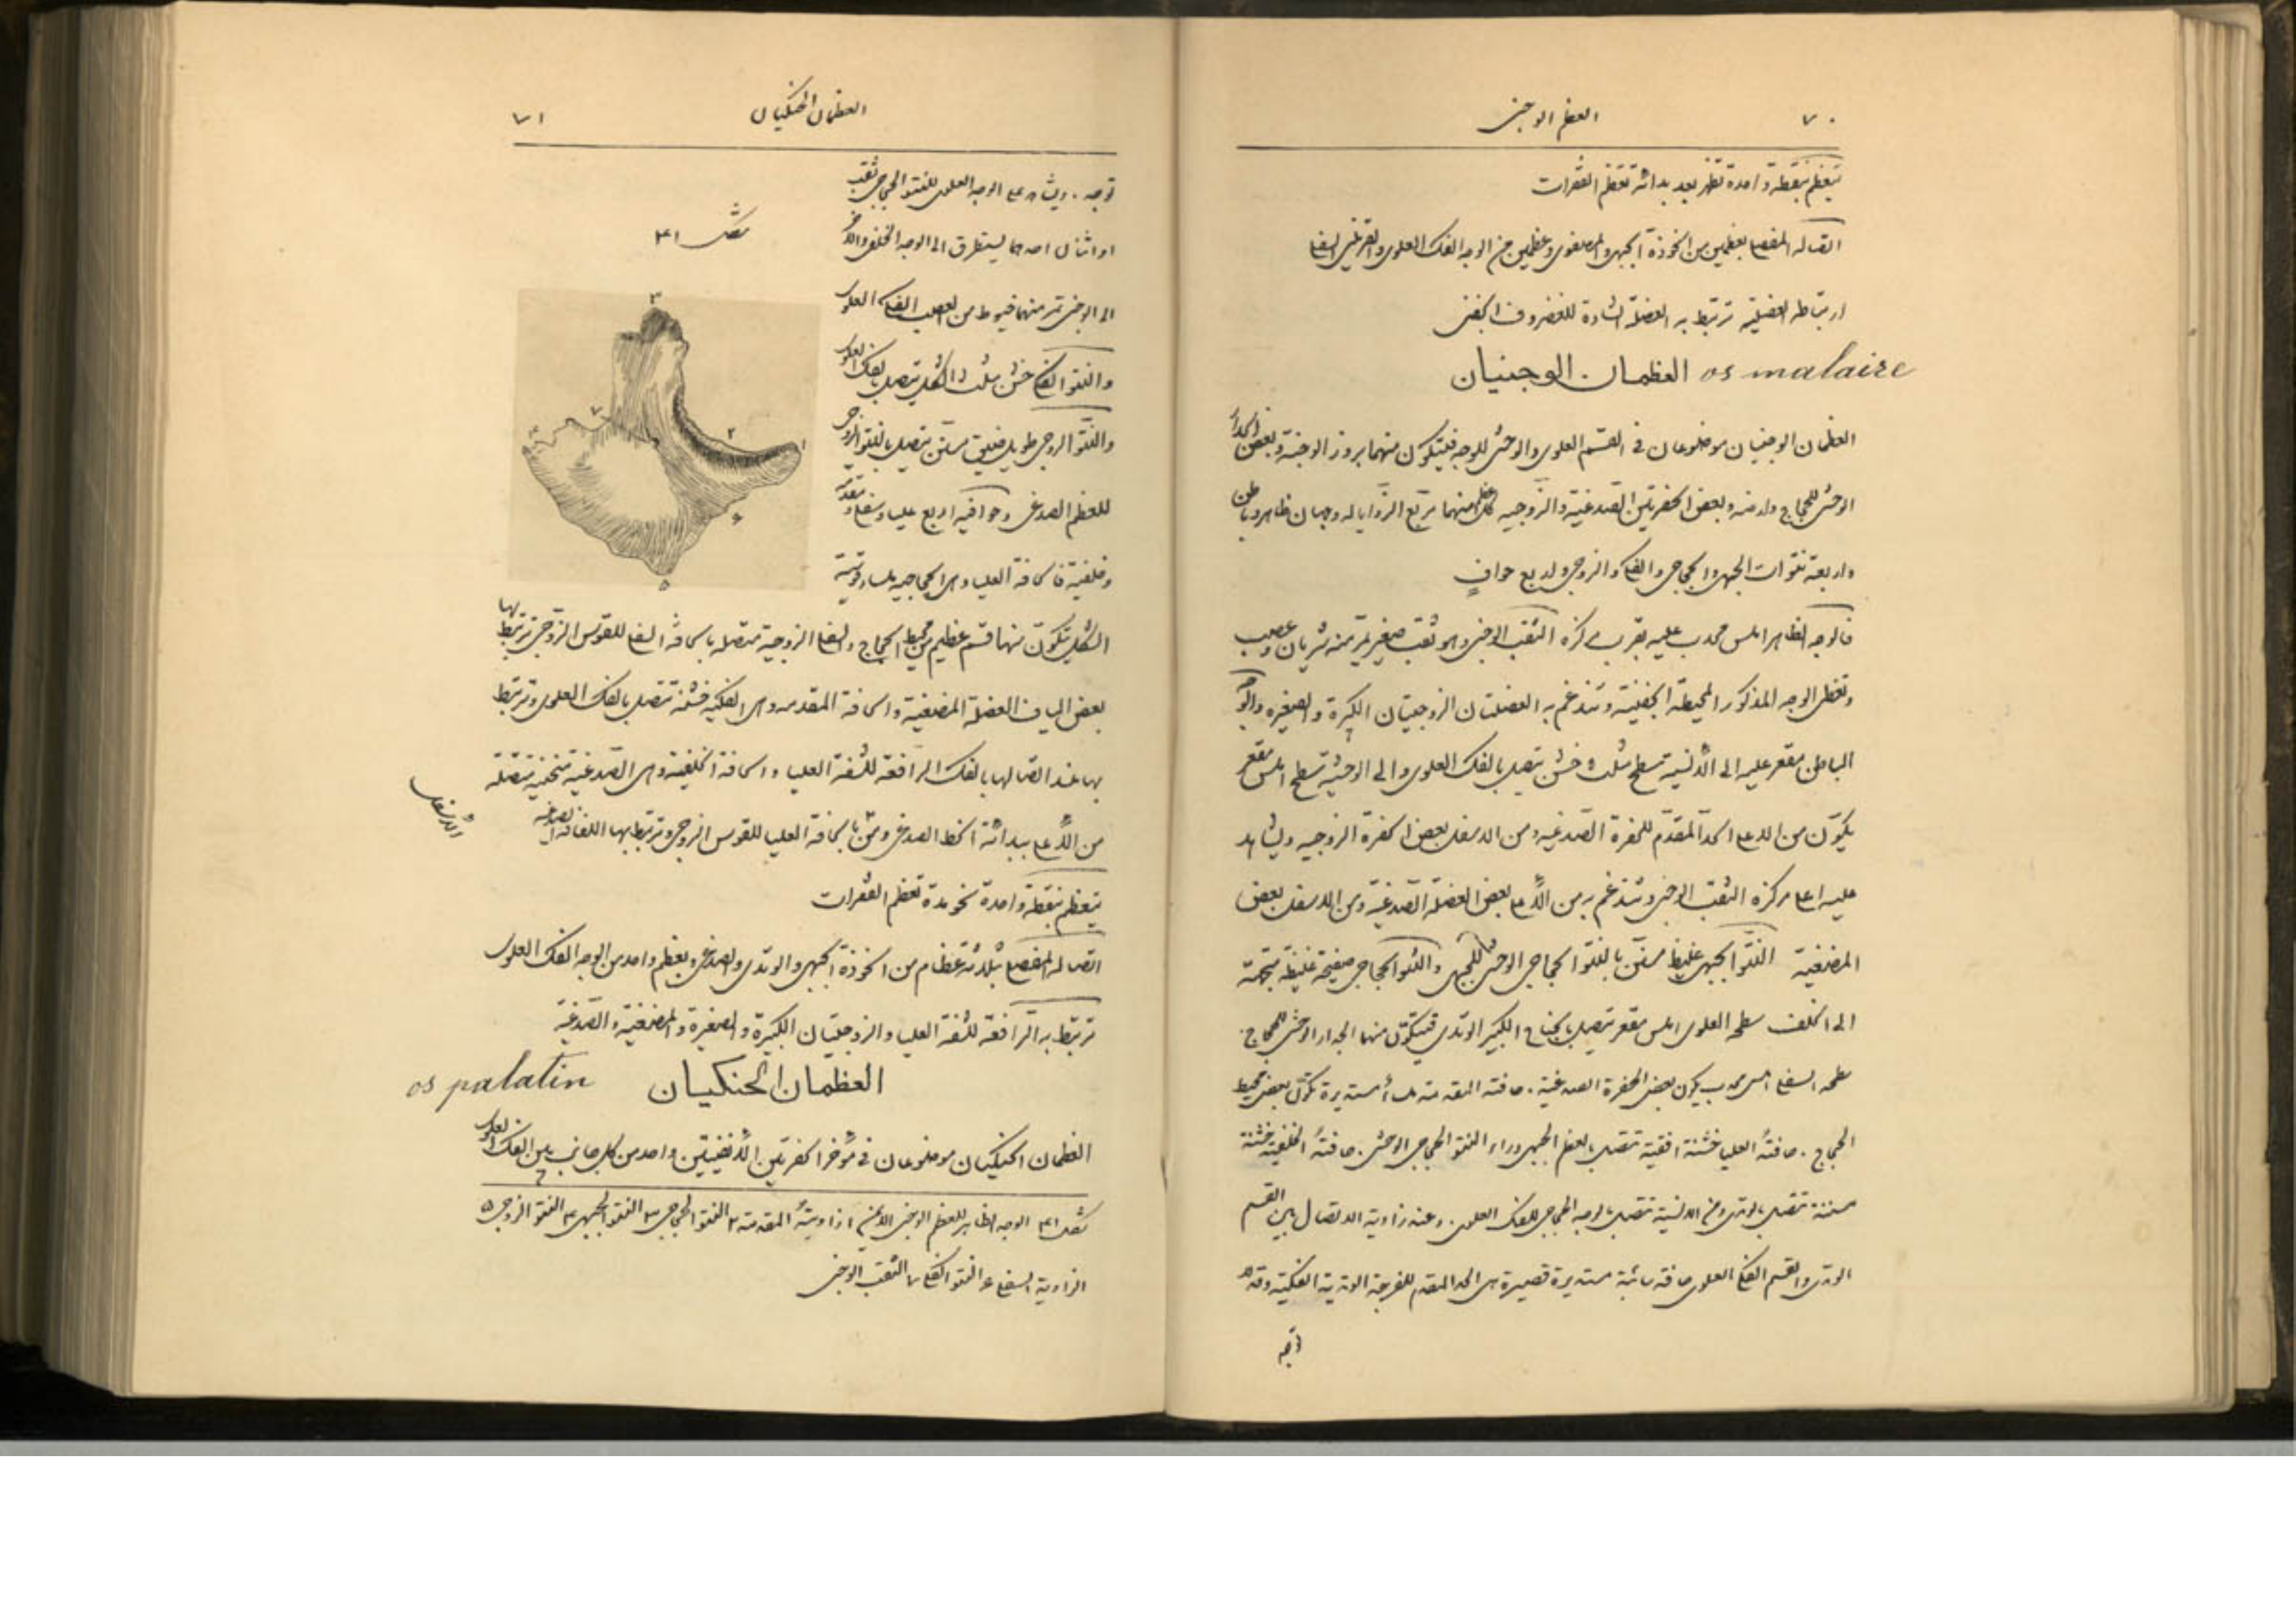 ٧٠
العظم الوجني
يتعظم بنقطة واحدة تظهر بعد بداءة تعظم الفقرات
اتصاله المفصلي بعظمين من الخوذة الجبهي والمصفوي وعظمين من الوجه الفك العلوي والقرني السفلي
ارتباطه العضلية ترتبط به العضلة الشادة للغضروف الجفني
العظمان الوجنيان os malaire
العظمان الوجنيان موضوعان في القسم العلوي والوحشي للوجه فيتكون منهما بروز الوجنة وبعض الجدار
الوحشي للحجاج وارضه وبعض الحفرتين الصدغية والزوجيه كل عظم منهما مربع الزوايا له وجهان ظاهر وباطن
واربعة نتوات الجبهي والحجاجي والفكي والزوجي واربع حوافٍ
فالوجه الظاهر املس محدب عليه بقرب مركزه الثقب الوجني وهو ثقب صغير يمر منه شريان وعصب
وتغطي الوجه المذكور المحيطة الجفنية وتندغم به العضلتان الزوجيتان الكبيرة والصغيره والوجه
الباطن مقعر عليه الى الأنسية سطح مثلث خشن يتصل بالفك العلوي والى الوحشية سطح املس مقعر
يكوّن من الاعلى الحد المقدّم للحفرة الصدغيه ومن الاسفل بعض الحفرة الزوجيه ويشاهد
عليه اعلى مركزه الثقب الوجني وتندغم به من الأعلى بعض العضلة الصدغية ومن الاسفل بعض
المضغية النتو الجبهي غليظ مسنّن بالنتو الحجاجي الوحشي للجبهي والنتو الحجاجي صفيحة غليظة متجهة
الى الخلف سطحه العلوي املس مقعر يتصل بالجناح الكبير الوتدي فيتكوّن منهما الجدار الوحشي للحجاج.
سطحه السفلي املس محدب يكون بعض الحفرة الصدغية. حافته المقدمة ملسأ مستديرة تكوّن بعض محيط
الحجاج. حافتهُ العليا خشنة افقية تتصل بالعظم الجبهي وراء النتو الحجاجي الوحشي. حافتهُ الخلفية خشنة
مسننة تتصل بالوتدي ومن الانسية تتصل بالوجه الحجاجي للفك العلوي. وعند زاوية الاتصال بين القسم
الوتدي والقسم الفكي العلوي حافة سائبة مستديرة قصيرة هي الحد المقدم للفرجة الوتدية الفكية وقد لا
٧١
العظمان الحنكيان
توجد. ويشاهد على الوجه العلوي للنتو الحجاجي ثقب
او اثنان احدهما يستطرق الى الوجه الخلفي والآخر
الى الوجني تمر منهما خيوط من العصب الفكي العلوي
والنتو الفكي خشن مثلث الشكل يتصل بالفك العلوي
والنتو الزوجي طويل ضيق مسنّن يتصل بالنتو الزوجي
للعظم الصدغي وحوافيه اربع عليا وسفلى ومقدمة
وخلفية فالحافة العليا وهي الحجاجيه ملساء قوسية
شكل ٤١
٣
٤
٧
٢
١
٦
٥
الشكل يتكوّن منها قسم عظيم من محيط الحجاج والسفلى الزوجية متصلة بالحافة السفلى للقوس الزوجي ترتبط بها
بعض الياف العضلة المضغية والحافة المقدمه وهي الفكيه خشنة تتصل بالفك العلوي وترتبط
بها عند اتصالها بالفك الرافعة للشفة العليا والحافة الخلفية وهي الصدغية منحنية متصلة
من الأعلى ببداءة الخط الصدغي ومن بالحافة العليا للقوس الزوجي وترتبط بها اللفافة الصدغية
والاسفل
يتعظم بنقطة واحدة تعظم الفقرات
اتصاله المفصلي بثلاثة عظام من الخوذة الجبهي والوتدي والصدغي وبعظم واحد من الوجه الفك العلوي
ترتبط به الرافعة للشفة العليا والزوجيتان الكبيرة والصغيرة والمضغية والصدغية
العظمان الحنكيان os palatin
العظمان الحنكيان موضوعان في مؤخر الحفرتين الأنفيتين واحد من كل جانب بين الفك العلوي
شكل ٤١ الوجه الظاهر للعظم الوجني الأيمن ١ زاويتهُ المقدمة ٢ النتو الحجاجي ٣ النتو الجبهي ٤ النتو الزوجي ٥
الزاوية السفلى ٦ النتو الفكي ٧ الثقب الوجني